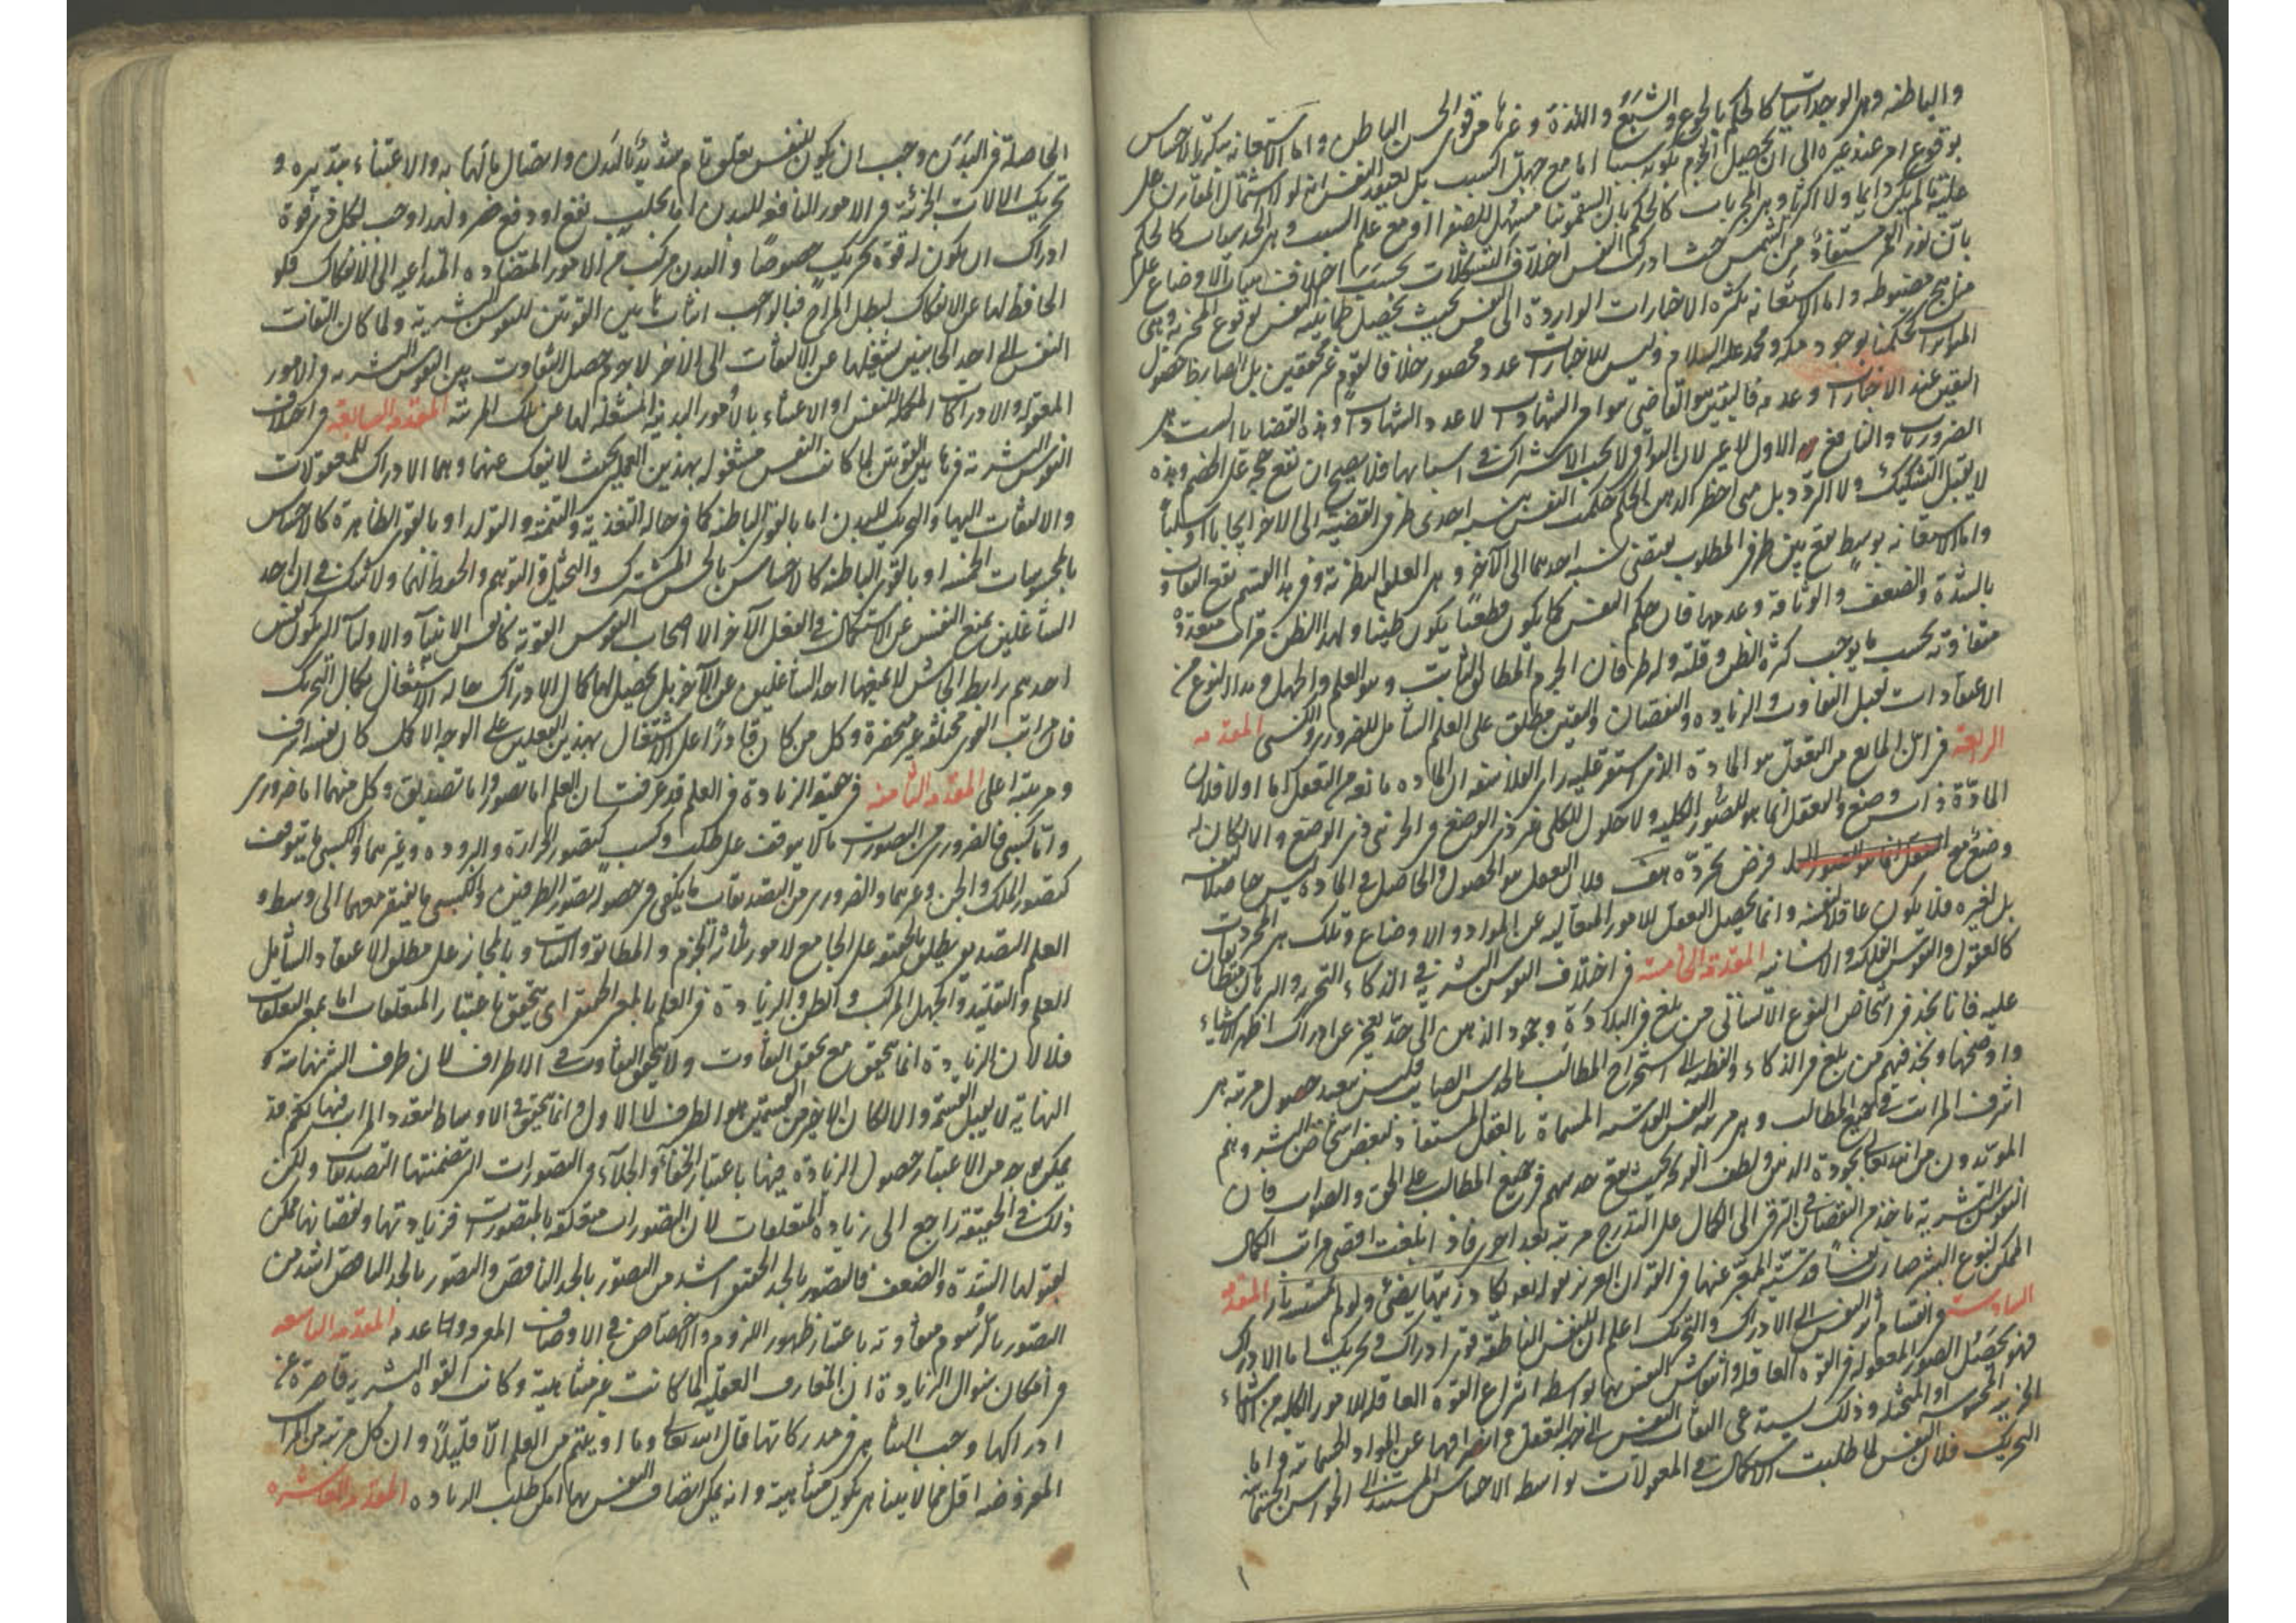 والباطنه وهى الوجدانيات كالحكم بالجوع والشبع واللذة وغيرها من قوى الحس الباطن واما الاستعانه بتكرر الاحساس
بوقوع امر عند غيره الى ان يحصل الجزم بكونه سببا اما مع جهل السبب بل يعتقد النفس انه لولا اشتمال المقارن على
عليته لم يكن دائما ولا اكثريا وهى المجربات كالحكم بان السقمونيا مسهل للصفرا او مع علم السبب وهى الحدسيات كالحكم
بان نور القمر مستفاد من الشمس حيث ادركت النفس اختلاف التشكلات بحسب اختلاف هيئات الاوضاع على
منهج مضبوطه واما الاستعانه بكثرة الاخبارات الواردة الى النفس بحيث يحصل طمانينة النفس بوقوع المخبر به وهى
المتواترات كحكمنا بوجود مكه ومحمد عليه السلام وليس للاخبارات عدد محصور خلافا لقوم غير محققين بل الضابط حصول
اليقين عند الاخبارات وعدمه فاليقين هو القاضى بتوافر الشهادات لا عدد الشهادات وهذه القضايا الست هى
الضروريات والنافع الاول لا غير لان البواقى لا يجب الاشتراك فى اسبابها فلا يصح ان تقع حجة على الخصم وهذه
لا يقبل التشكيك ولا التردد بل متى احظر الذهن الحكم حكمت النفس بنسبة احدى طرفى القضية الى الاخر ايجابا او سلبا
واما الاستعانه بوسط يقع بين طرفى المطلوب يقتضى نسبة احدهما الى الآخر وهى العلوم النظرية وفى هذا القسم يقع التفاوت
بالشدة والضعف والوثاقة وعدمها فان حكم النفس كما يكون قطعيا يكون ظنيا ولهذا الظن مراتب متعددة
متفاوته بحسب ما يوجب كثرة الظن وقلته وله طرفان الجزم المطابق الثابت وهو العلم والجهل وهذا النوع من
الاعتقادات يقبل التفاوت والزياده والنقصان واليقين يطلق على العلم الشامل للضرورى والكسبى المقدمه
الرابعة فى ان المانع من التعقل هو المادة الذى استقر عليه راى الفلاسفه ان الماده مانعه من التعقل اما اولا فلان
المادة ذات وضع والتعقل انما هو للصور الكلية ولا حلول للكلى فى ذى الوضع والجزئى ذى الوضع والا لكان له
وضع مع فرض تجرده هف فلان التعقل هو الحصول والحاصل فى المادة ليس حاصلا لنفسه
بل لغيره فلا يكون عاقلا لنفسه وانما يحصل التعقل للامور المتعاليه عن المواد والاوضاع وتلك هى المجردات
كالعقول والنفوس الفلكيه والانسانيه المقدمة الخامسة فى اختلاف النفوس البشرية فى الذكاء التجربه والبرهان متطابقان
عليه فانا نجد فى اشخاص النوع الانسانى من بلغ فى البلادة وجمود الذهن الى حد يعجز عن ادراك اظهر الاشياء
واوضحها ونجد فيهم من بلغ فى الذكاء والفطنه الى استخراج المطالب بالحدس الصايب فليس ببعيد حصول مرتبة هى
اشرف المراتب فى جميع المطالب وهى مرتبة النفس القدسيه المسماة بالعقل المستفاد لبعض اشخاص البشر وهم
المويدون من الله تعالى بجودة الذهن ولطف القوة بحيث يقع حدسهم فى جميع المطالب على الحق والصواب فان
النفوس البشرية تاخذ من النقصان فى الترقى الى الكمال على التدرج مرتبة بعد اخرى فاذا بلغت اقصى مراتب الكمال
الممكن لنوع البشر صارت نفسا قدسية المعبر عنها فى القران العزيز بقوله تعالى يكاد زيتها يضئ ولو لم تمسسه نار المقدمة
السادسة فى انقسام اثر النفس الى الادراك والتحريك اعلم ان للنفس الناطقة قوتى ادراك وتحريك اما الادراك
فهو تحصيل الصور المعقوله فى القوة العاقله وانتقاش النفس بها بواسطة انتزاع القوة العاقلة للامور الكلية من الاشياء
الجزئية المحسوسه او المتخيله وذلك يستدعى التفات النفس الى جهة التعقل وانصرافها عن المواد الجسمانية واما
التحريك فلان النفس لما طلبت الاستكمال فى المعقولات بواسطة الاحساس المستند الى الحواس الجسمانية
الحاصلة فى البدن وجب ان يكون للنفس تعلق تام بالبدن واتصال ما لها به والاعتناء بتدبيره و
تحريك الالات الجزئية فى الامور النافعه للبدن اما بجلب نفع او دفع ضر ولهذا وجب لكل ذى قوة
ادراك ان يكون له قوة تحريك خصوصا والبدن مركب من الامور المتضاده المتداعيه الى الانفكاك فلو
الحافظ لها عن الانفكاك لبطل المزاج فبالواجب اثبات هاتين القوتين للنفوس البشريه ولما كان التفات
النفس الى احد الجانبين يشغلها عن الالتفات الى الآخر لا جرم حصل التفاوت بين النفوس البشريه فى الامور
المعقوله والادراكات المكمله للنفس او الاعتناء بالامور البدنية المشغلة لها عن تلك المرتبة المقدمه السابعة فى اختلاف
النفوس البشرية فى هاتين القوتين لما كانت النفس مشغوله بهذين العملين بحيث لا ينفك عنهما وهما الادراك للمعقولات
والالتفات اليها والتحريك للبدن اما بالقوى الباطنه كما فى حالة التغذية والتنمية والتوليد او بالقوى الظاهرة كالاحساس
بالمحسوسات الخمسة او بالقوى الباطنه كالاحساس بالحس المشترك والتخيل والتوهم والحفظ لهما ولا شك فى ان احد
الشاغلين يمنع النفس عن الاستكمال فى الفعل الآخر الا اصحاب النفوس القوية كانفس الانبياء والاولياء الذين يكون نفس
احدهم رابط الجاش لا يمنعها احد الشاغلين عن الآخر بل يحصل لها كمال الادراك حاله الاشتغال بكمال التحريك
فان مراتب القوى مختلفه غير منحصرة وكل من كان قادرا على الاشتغال بهذين الفعلين على الوجه الاكمل كان نفسه اشرف
ومرتبته اعلى المقدمه الثامنه فى حقيقة الزيادة فى العلم قد عرفت ان العلم اما تصور واما تصديق وكل منهما اما ضرورى
واما كسبى فالضرورى من التصورات ما لا يتوقف على طلب وكسب كتصور الحرارة والبروده وغيرهما والكسبى ما يتوقف
كتصور الملك والجن وغيرهما والضرورى من التصديقات ما يكفى فى حصوله تصور الطرفين والكسبى ما يفتقر معهما الى وسط و
العلم التصديقى يطلق بالحقيقة على الجامع لامور ثلاثة الجزم والمطابقة والثبات وبالمجاز على مطلق الاعتقاد الشامل
للعلم والتقليد والجهل المركب والظن والزيادة فى العلم بالمعنى الحقيقى اى تتحقق باعتبار المتعلقات اما بمعنى التعلقات
فلا لان الزيادة انما تتحقق مع تحقق التفاوت ولا يتحقق التفاوت فى الاطراف لان طرف الشئ نهايته و
النهاية لا يقبل القسمة والا لكان الاخير من القسمين هو الطرف لا الاول وانما يتحقق فى الاوساط لتعدد المراتب فيها لكنهم قد
يمكن بوجه من الاعتبار حصول الزياده فيها باعتبار الخفاء والجلاء فى التصورات التى تضمنتها التصديقات ولكن
ذلك فى الحقيقة راجع الى زيادة المتعلقات لان التصورات متعلقة بالمتصورات فزيادتها ونقصانها ممكن
لقبولها الشدة والضعف فالتصور بالحد الحقيقى اشد من التصور بالحد الناقص والتصور بالحد الناقص اشد من
التصور بالرسوم متفاوته باعتبار ظهور اللزوم والاختصاص فى الاوصاف المعرفه وعدمه المقدمه التاسعه
فى امكان سؤال الزيادة ان المعارف العقليه لما كانت غير متناهية وكانت القوة البشرية قاصرة عن
ادراكها وجب التناهى فى مدركاتها قال الله تعالى وما اوتيتم من العلم الا قليلا وان كل مرتبة من المراتب
المفروضه اقل مما لا يتناهى يكون متناهية وانه يمكن اتصاف النفس بها امكن طلب الزياده المقدمه العاشره